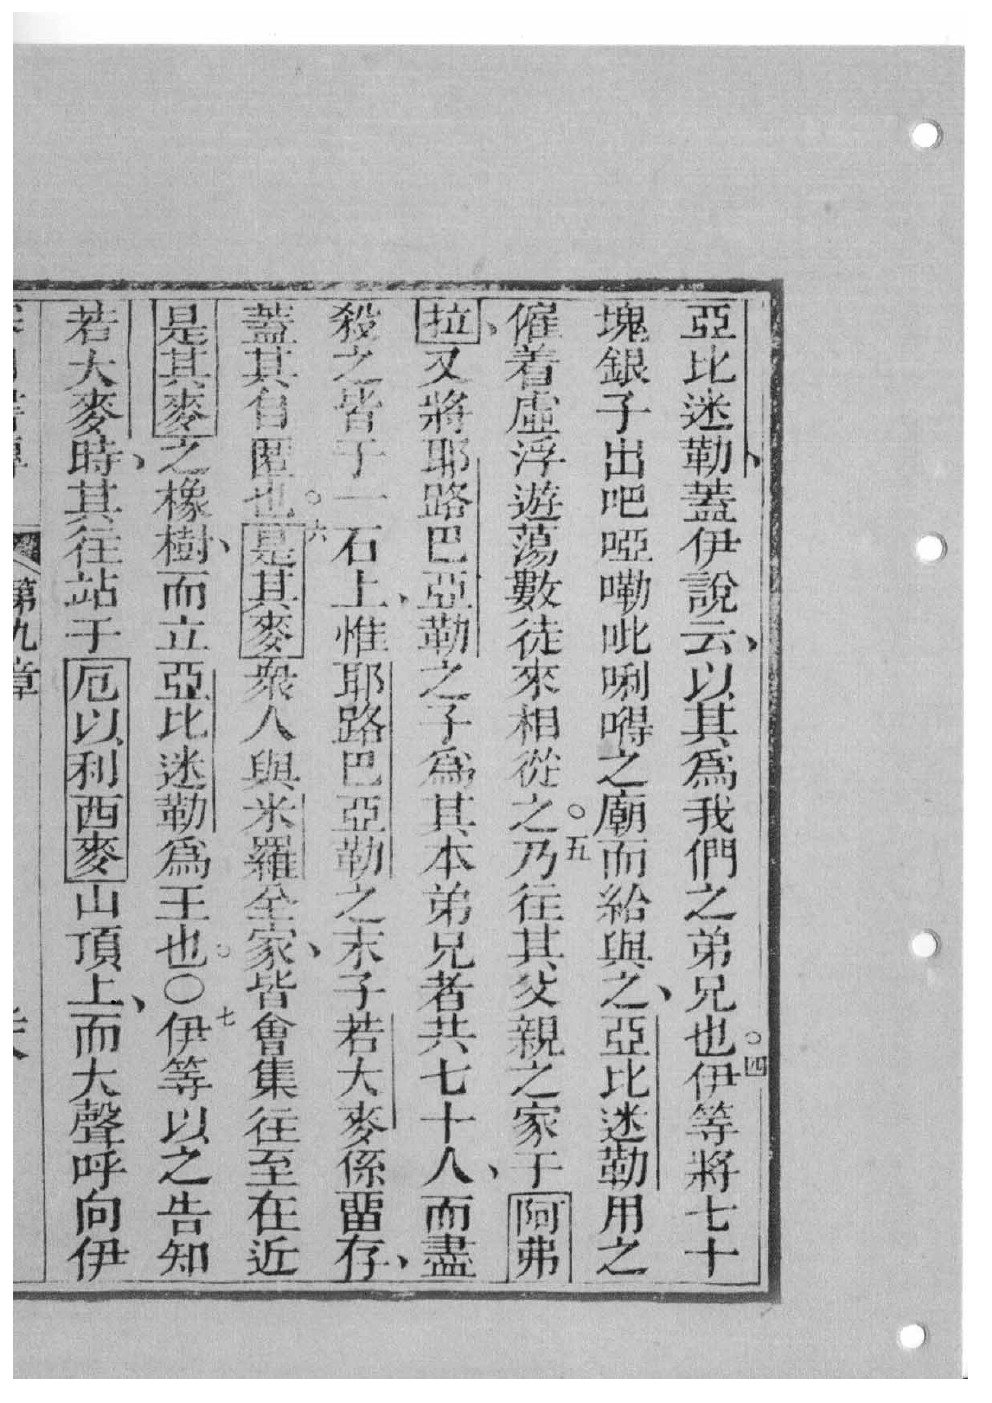 亞比迷勒、蓋伊說云、以其爲我們之弟兄也。四伊等將七十
塊銀子出吧啞嘞呲唎嘚之廟而給與之、亞比迷勒用之
僱着虛浮遊蕩數徒來相從之。五乃往其父親之家于阿弗
拉、又將耶路巴亞勒之子爲其本弟兄者共七十人、而盡
殺之皆于一石上、惟耶路巴亞勒之末子若大麥係畱存、
蓋其自匿也。六是其麥衆人與米羅全家、皆會集往至在近
是其麥之橡樹、而立亞比迷勒爲王也。〇七伊等以之告知
若大麥時、其往站于厄以利西麥山頂上、而大聲呼向伊
第九章